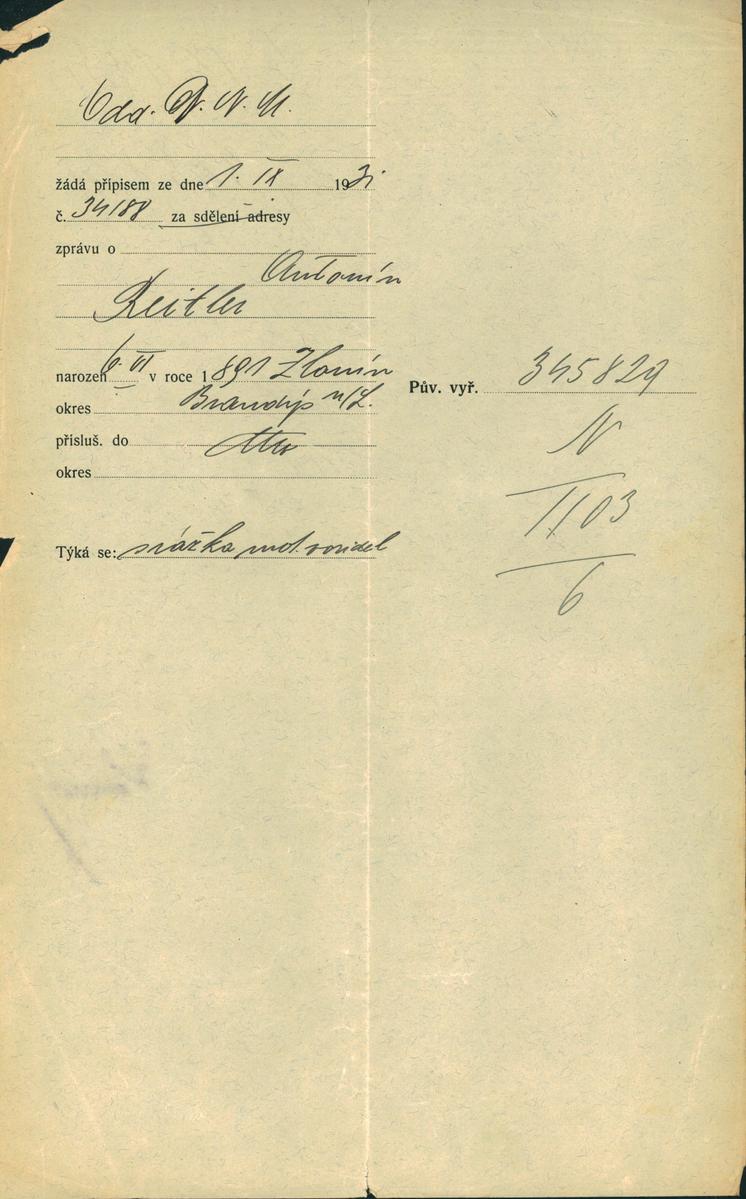 Odd. D. N. M.
žádá přípisem ze dne 1. IX 1931
č. 34188 za sdělení adresy
zprávu o
Antonín
Reitler
narozen 6. VI v roce 1891 Zlonín
okres Brandýs n/L.
Pův. vyř. 345829
přísluš. do dtto
N
okres
1103
Týká se: srážka mot. vozidel
6